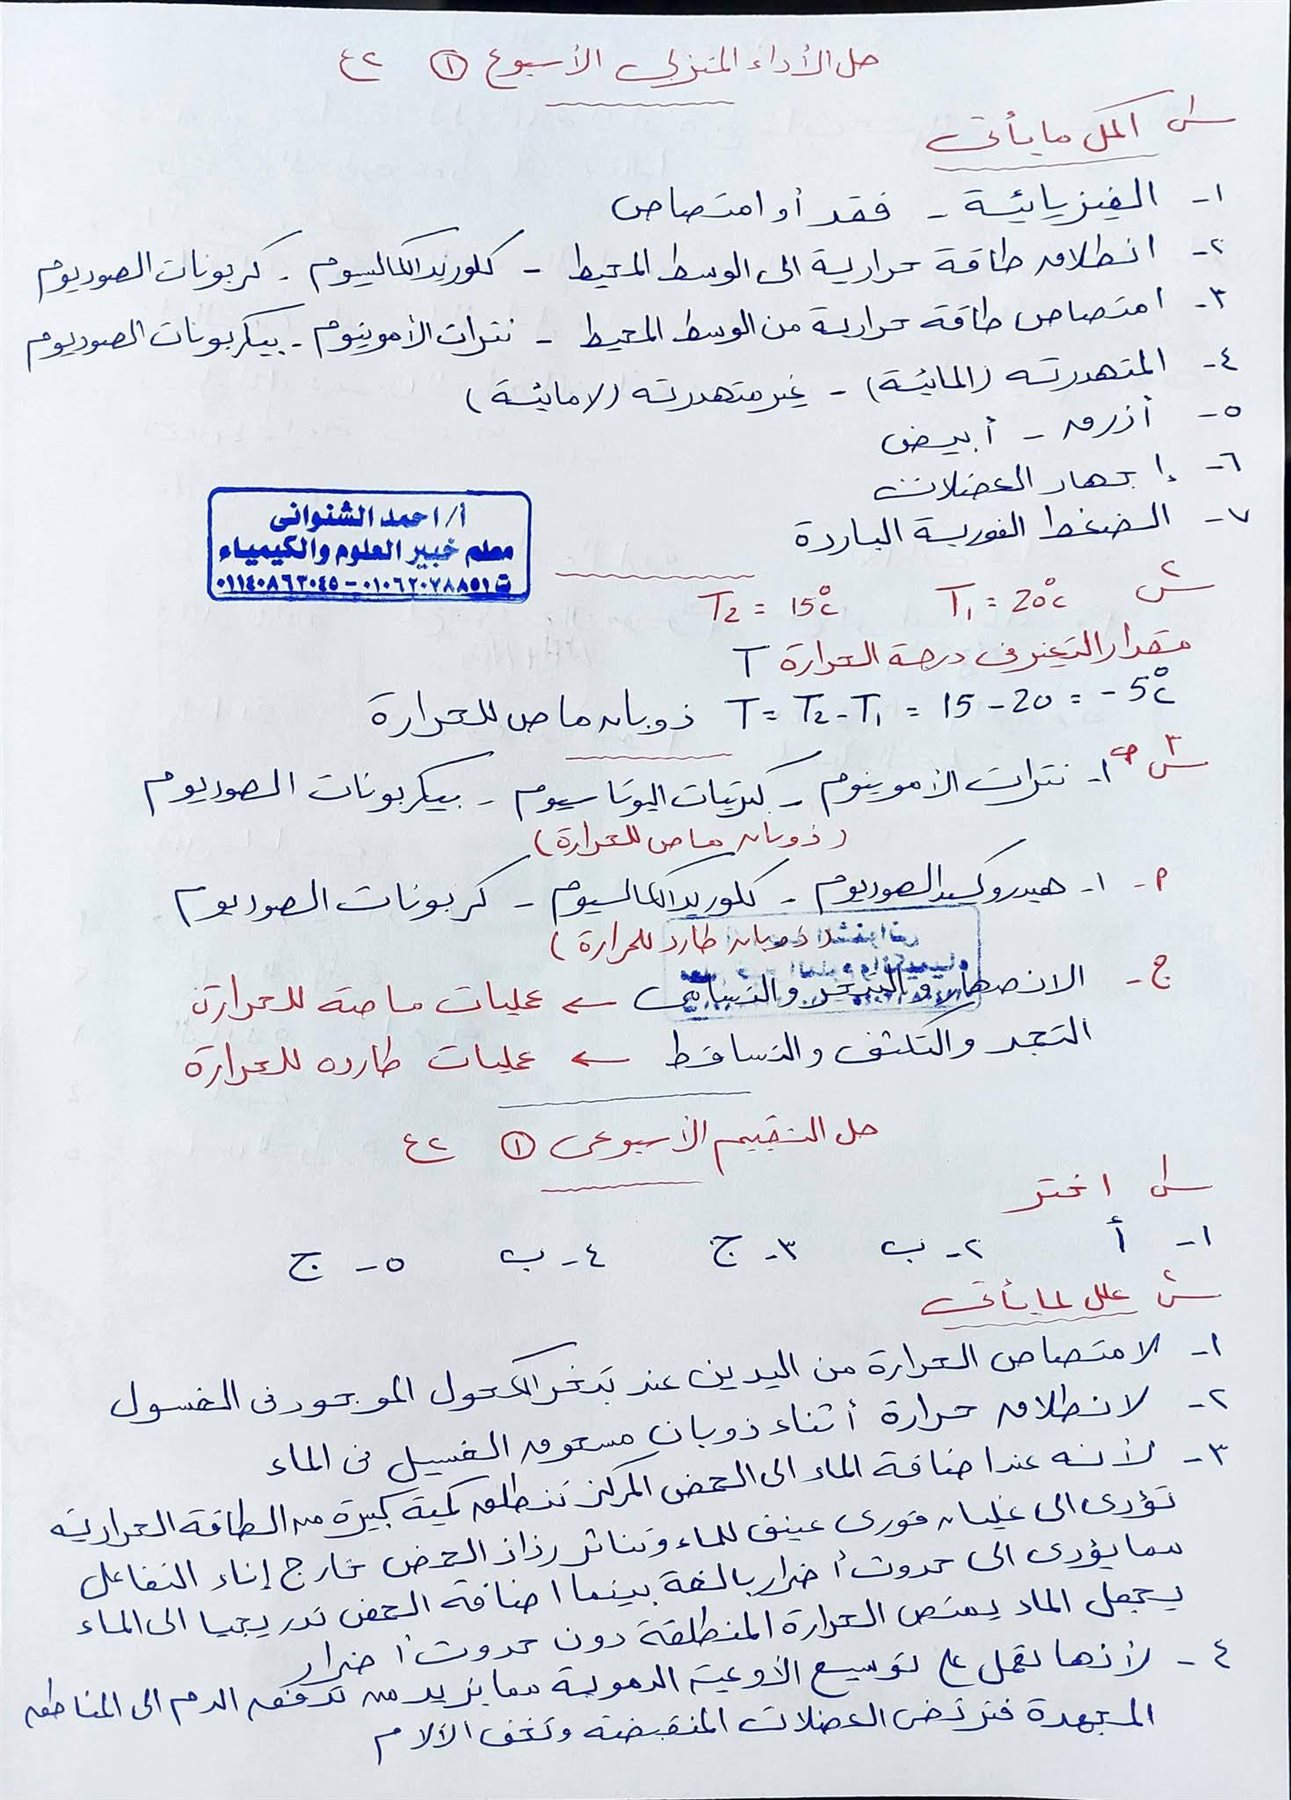 حل الأداء المنزلى الأسبوع ① ٢ع
س١ أكمل ما يأتى
١- الفيزيائية - فقد أو امتصاص
٢- انطلاق طاقة حرارية الى الوسط المحيط - كلوريد الكالسيوم - كربونات الصوديوم
٣- امتصاص طاقة حرارية من الوسط المحيط - نترات الأمونيوم - بيكربونات الصوديوم
٤- المتهدرته (المائية) - غير متهدرته (لا مائية)
٥- أزرق - أبيض
٦- إجهاد العضلات
٧- الضغط الفورية الباردة
أ/ احمد الشنوانى
معلم خبير العلوم والكيمياء
ت ٠١٠٦٢٠٧٨٨٥١ - ٠١١٤٠٨٦٣٠٤٥
س٢ T₁ = 20°c T₂ = 15°c
مقدار التغير فى درجة الحرارة T
T = T₂ - T₁ = 15 - 20 = - 5°c ذوبان ماص للحرارة
س٣ ١- نترات الأمونيوم - كبريتات البوتاسيوم - بيكربونات الصوديوم
(ذوبان ماص للحرارة)
١- هيدروكسيد الصوديوم - كلوريد الكالسيوم - كربونات الصوديوم
(ذوبان طارد للحرارة)
ج- الانصهار والتبخر والتسامى ← عمليات ماصة للحرارة
التجمد والتكثف والتساقط ← عمليات طارده للحرارة
حل التقييم الأسبوعى ① ٢ع
س١ اختر
١- أ ٢- ب ٣- ج ٤- ب ٥- ج
س٢ علل لما يأتى
١- لامتصاص الحرارة من اليدين عند تبخر الكحول الموجود فى الغسول
٢- لانطلاق حرارة أثناء ذوبان مسحوق الغسيل فى الماء
٣- لأنه عند اضافة الماء الى الحمض المركز تنطلق كمية كبيرة من الطاقة الحرارية
تؤدى الى غليان فورى عنيف للماء وتناثر رذاذ الحمض خارج إناء التفاعل
مما يؤدى الى حدوث أضرار بالغة بينما اضافة الحمض تدريجيا الى الماء
يجعل الماء يمتص الحرارة المنطلقة دون حدوث أضرار
٤- لأنها تعمل على توسيع الأوعية الدموية مما يزيد من تدفق الدم الى المناطق
المجهدة فترتخى العضلات المنقبضة وتخف الآلام